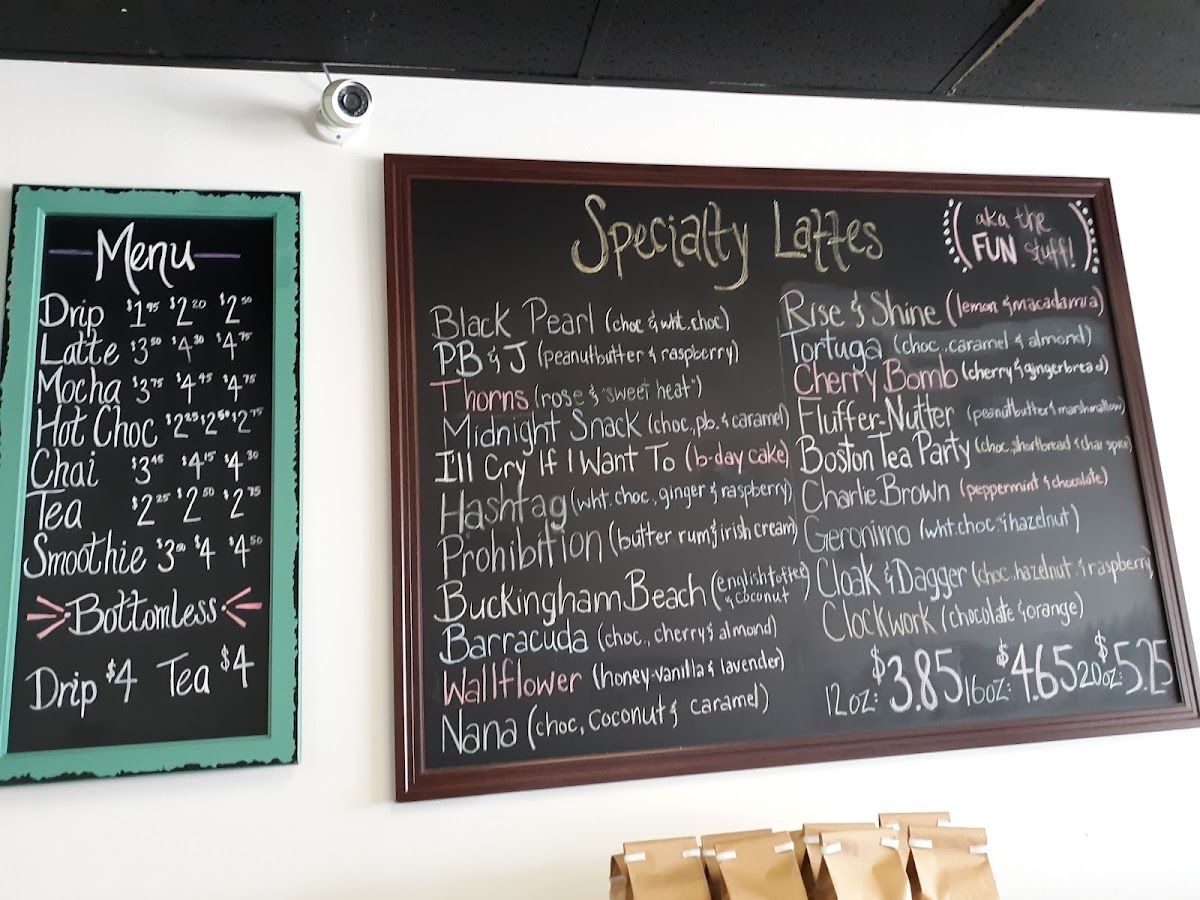 Menu
Drip $1.95 $2.20 $2.50
Latte $3.50 $4.30 $4.75
Mocha $3.75 $4.45 $4.75
Hot Choc $2.25 $2.50 $2.75
Chai $3.45 $4.15 $4.30
Tea $2.25 $2.50 $2.75
Smoothie $3.50 $4 $4.50
Bottomless
Drip $4 Tea $4
Specialty Lattes
(aka the
FUN stuff!)
Black Pearl (choc & wht. choc)
PB & J (peanutbutter & raspberry)
Thorns (rose & "sweet heat")
Midnight Snack (choc., pb. & caramel)
I'll Cry If I Want To (b-day cake)
Hashtag (wht. choc., ginger & raspberry)
Prohibition (butter rum & irish cream)
Buckingham Beach (english toffee
& coconut)
Barracuda (choc., cherry & almond)
Wallflower (honey-vanilla & lavender)
Nana (choc, coconut & caramel)
Rise & Shine (lemon & macadamia)
Tortuga (choc, caramel & almond)
Cherry Bomb (cherry & gingerbread)
Fluffer-Nutter (peanutbutter & marshmallow)
Boston Tea Party (choc., shortbread & chai spice)
Charlie Brown (peppermint & chocolate)
Geronimo (wht. choc. & hazelnut)
Cloak & Dagger (choc. hazelnut & raspberry)
Clockwork (chocolate & orange)
12oz: $3.85 16oz: $4.65 20oz: $5.25